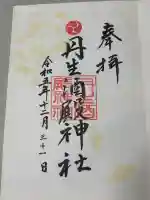 奉拝
丹生酒殿神社
令和五年十二月三十一日